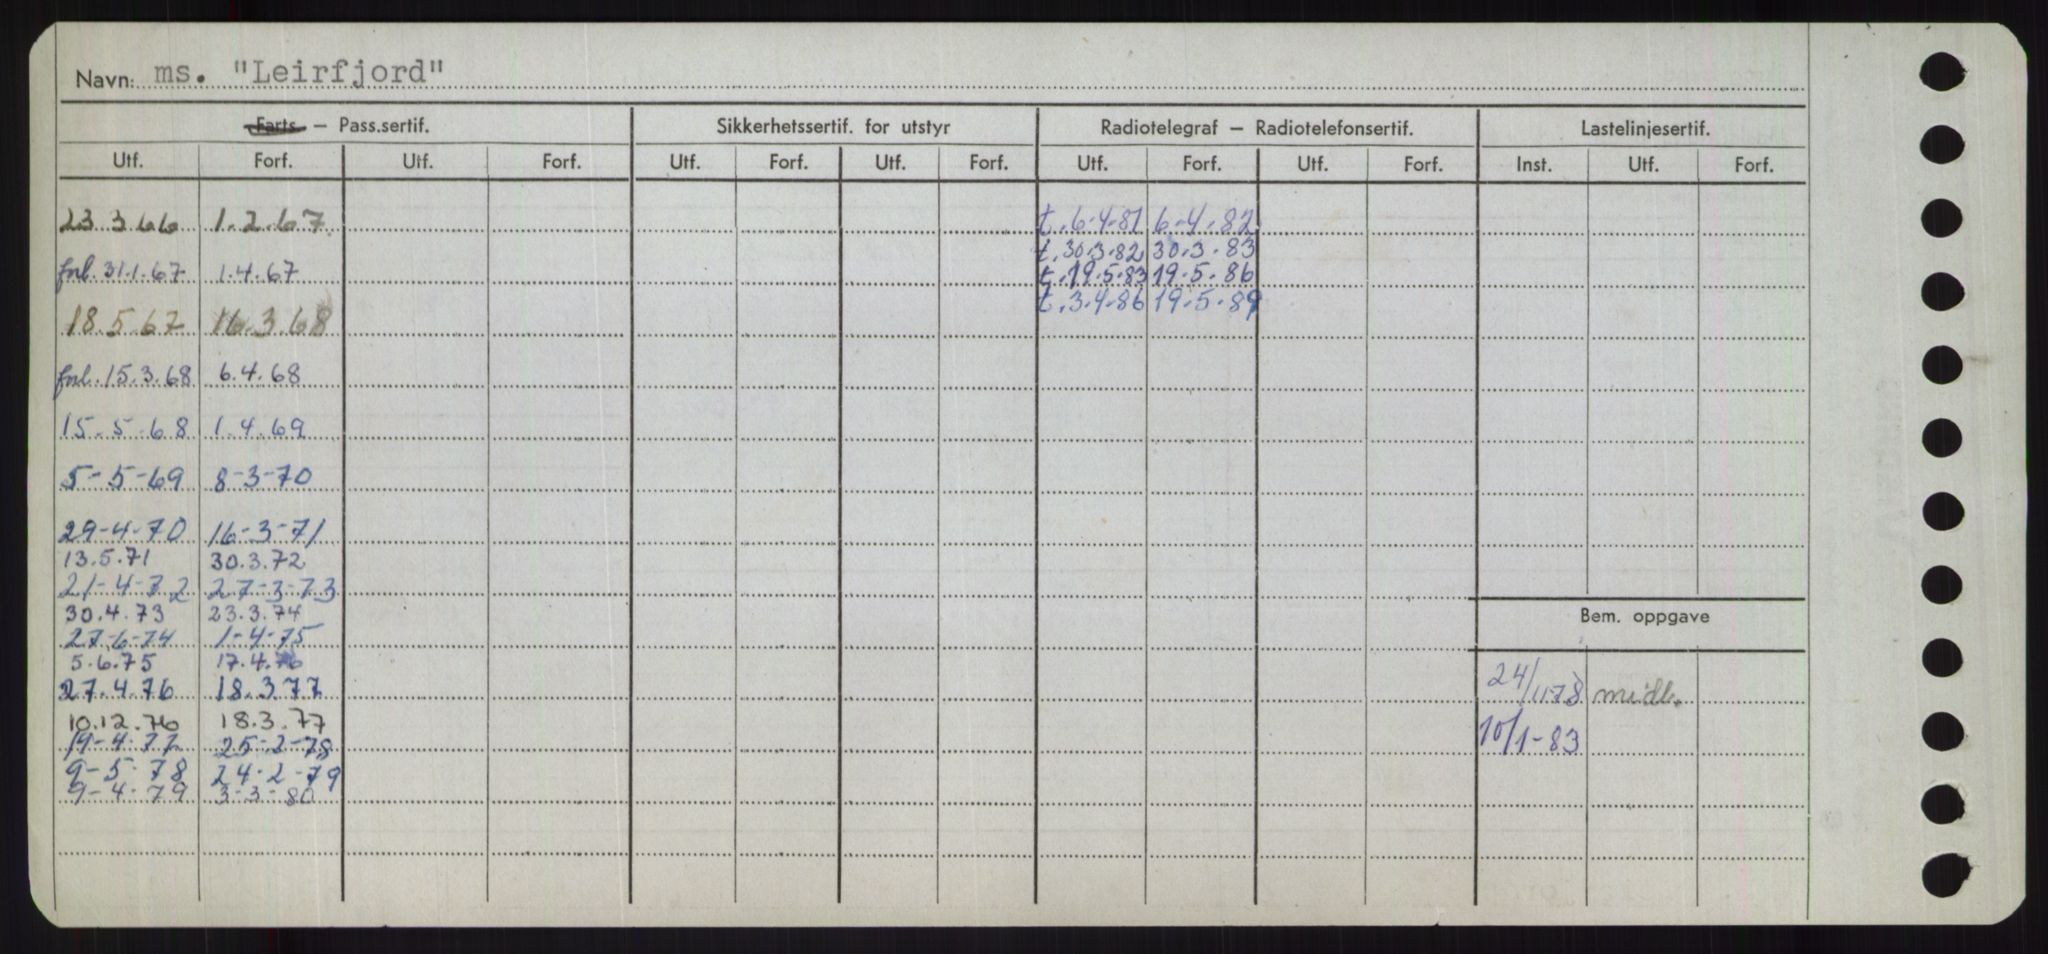 Navn: ms. "Leirfjord"
Farts – Pass.sertif. Sikkerhetssertif. for utstyr Radiotelegraf – Radiotelefonsertif. Lastelinjesertif.
Utf. Forf. Utf. Forf. Utf. Forf. Utf. Forf. Utf. Forf. Utf. Forf. Inst. Utf. Forf.
23.3.66 1.2.67 t. 6-4-81 6-4-82
t. 30.3.82 30.3.83
forl. 31.1.67 1.4.67 t. 19.5.83 19.5.86
t. 3.4.86 19.5.89
18.5.67 16.3.68
forl. 15.3.68 6.4.68
15.5.68 1.4.69
5-5-69 8-3-70
29-4-70 16-3-71
13.5.71 30.3.72
21-4-72 27-3-73
30.4.73 23.3.74 Bem. oppgave
27-6-74 1-4-75
5.6.75 17.4.76
27.4.76 18.3.77 24/11-78 midl.
10.12.76 18.3.77
19-4-77 25-2-78 10/1-83
9-5-78 24-2-79
9-4-79 3-3-80